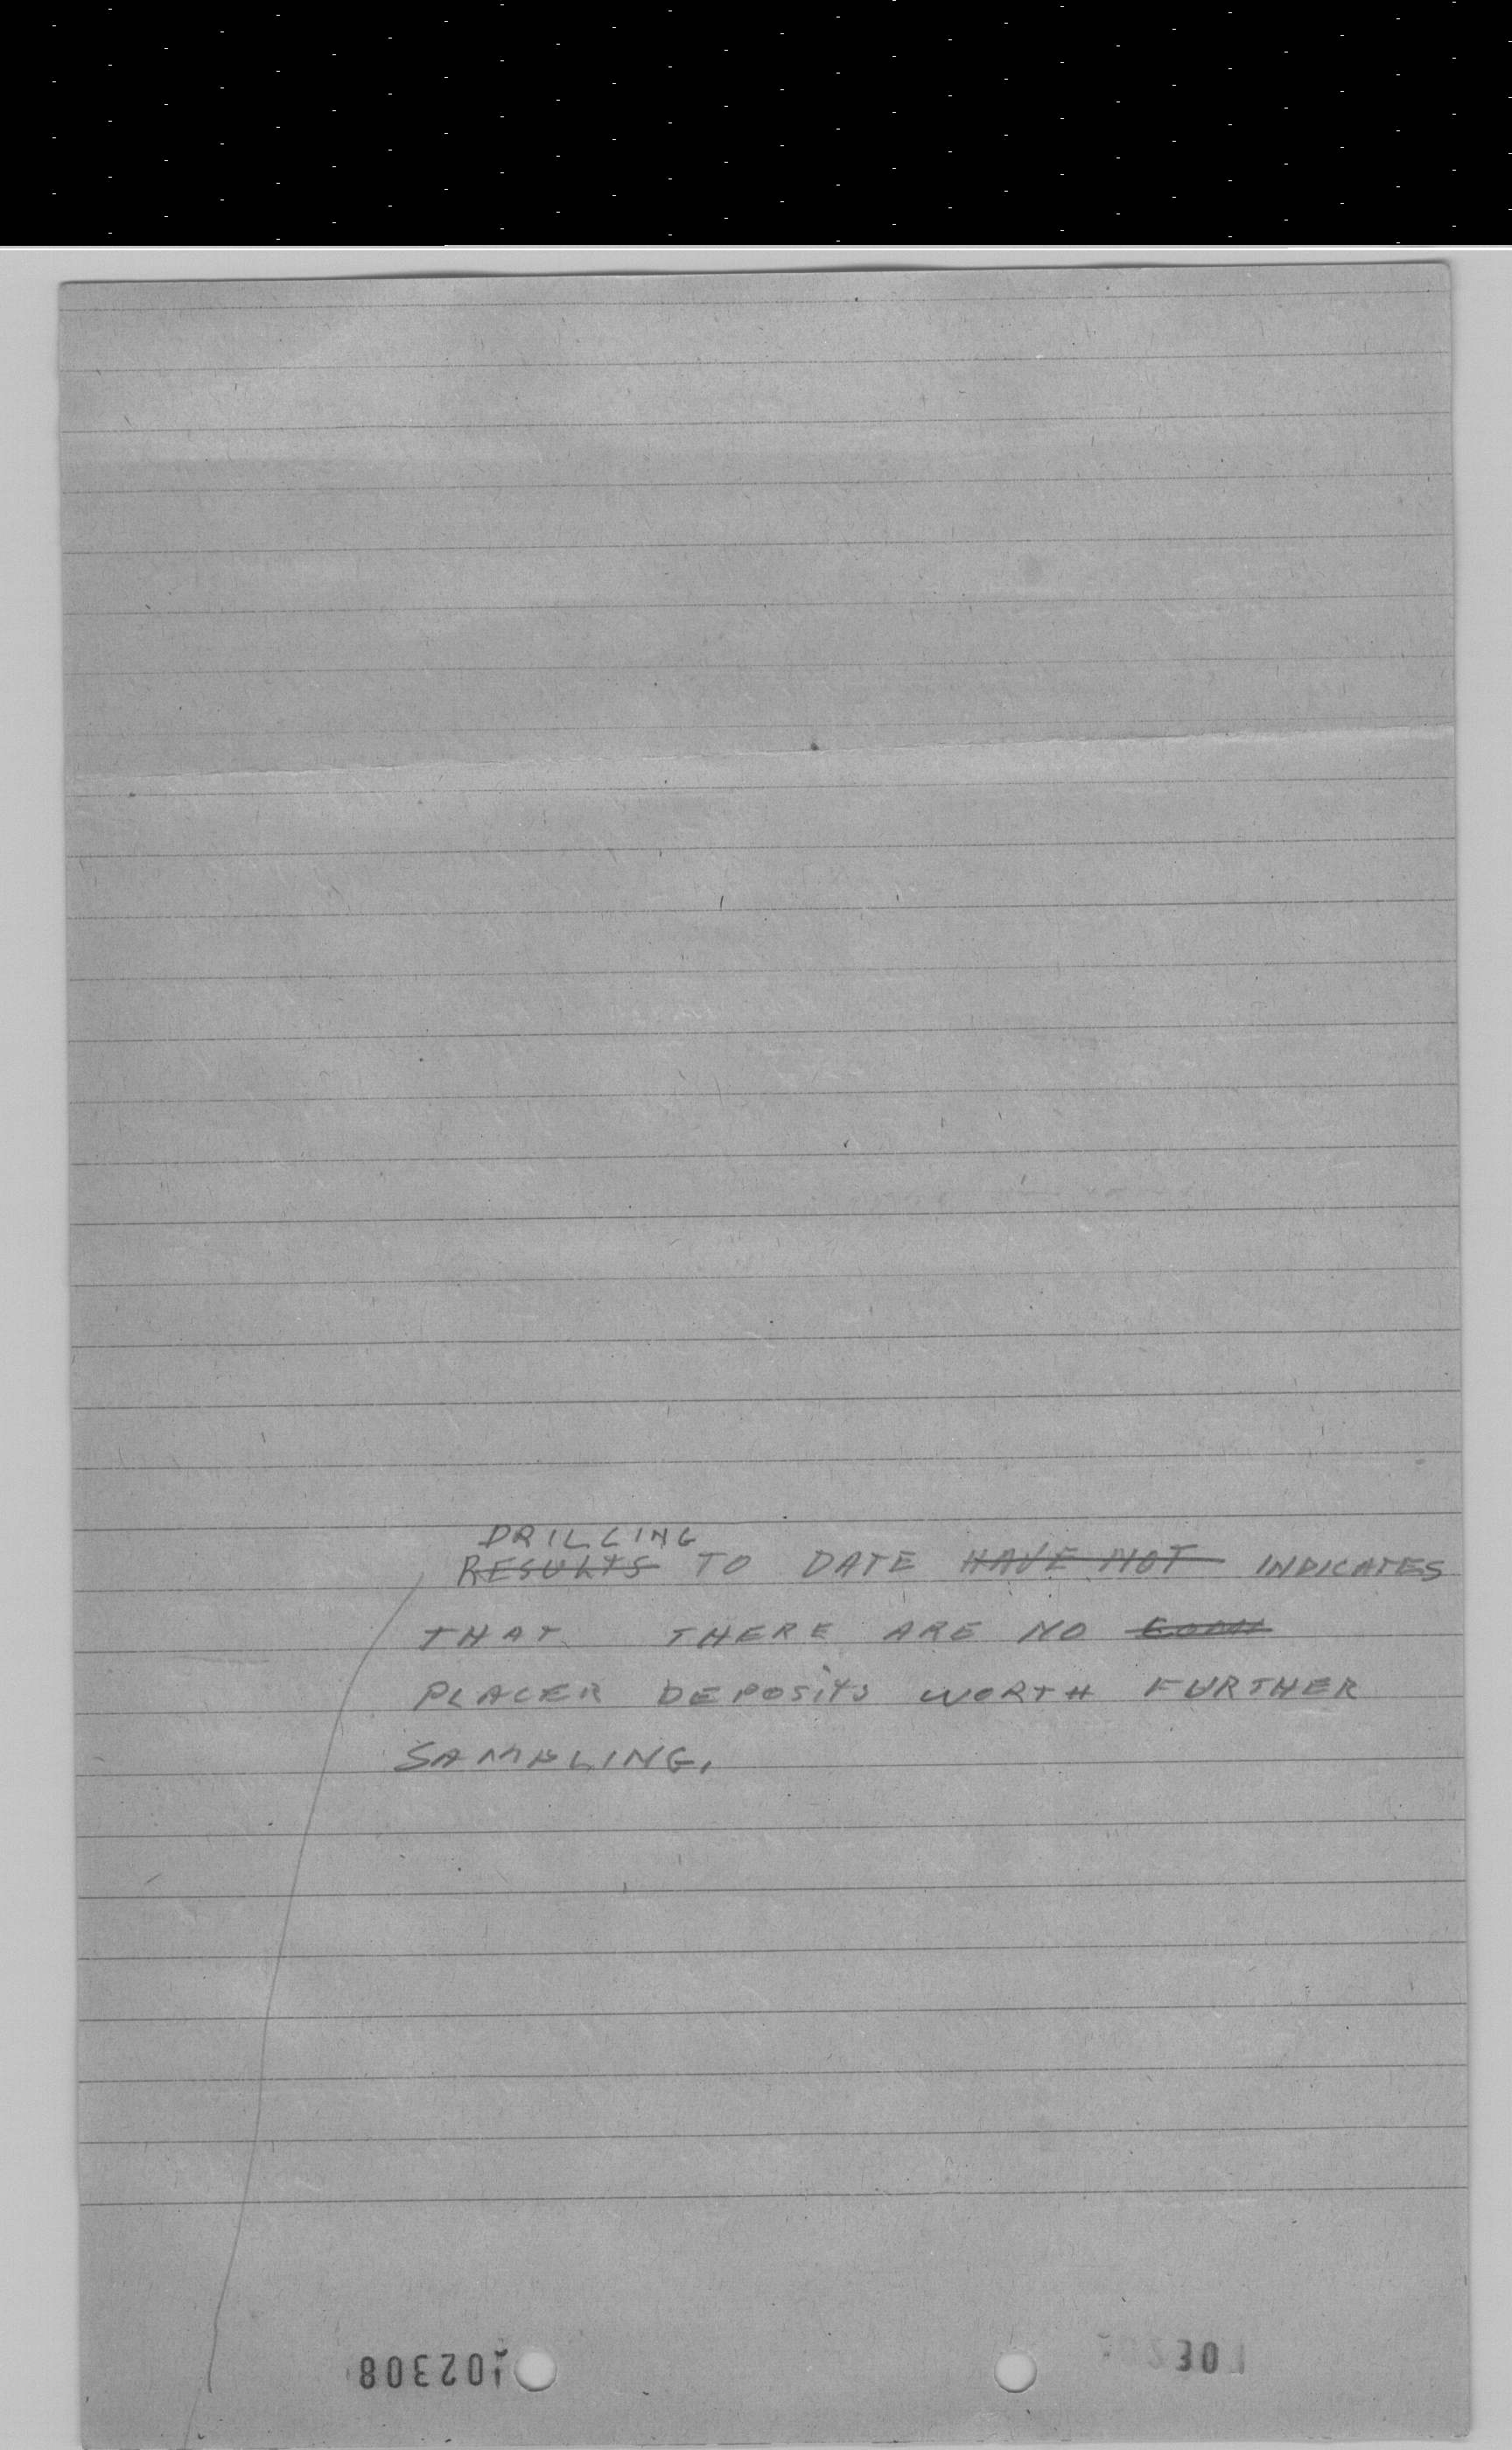 DRILLING
RESULTS TO DATE HAVE NOT INDICATES
THAT THERE ARE NO
PLACER DEPOSITS WORTH FURTHER
SAMPLING.
102308